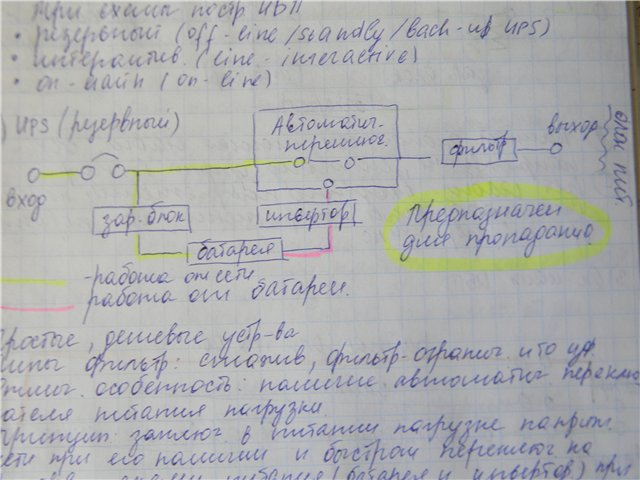 При схемы постр ИБП
• резервный (off-line/standly/back-up UPS)
• интерактив. (line-interactive)
• on-лайн (on-line)
) UPS (резервный)
Автоматич.
переключ.
вход
фильтр
выход
блок пит
зар. блок
инвертор
батарея
Предназначен
для пропадания
- работа от сети
работа от батареи.
Простые, дешевые устр-ва
фильтр: сглажив, фильтр-огранич.
особенность: наличие автоматич перекл
ателя питания нагрузки.
Принцип заключ в питании нагрузки напряж.
сети при его наличии и быстром переключ на
питания (батарея и инвертор) при